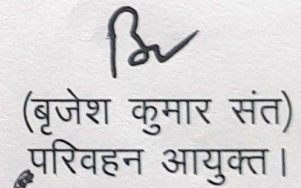 (बृजेश कुमार संत)
परिवहन आयुक्त।